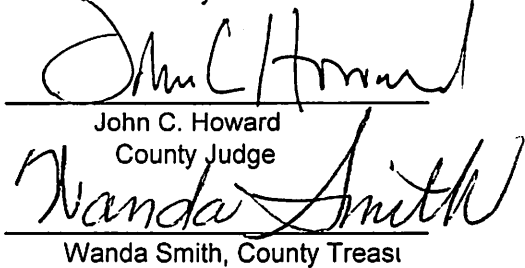 John C Howard
John C. Howard
County Judge
Wanda Smith
Wanda Smith, County Treasu